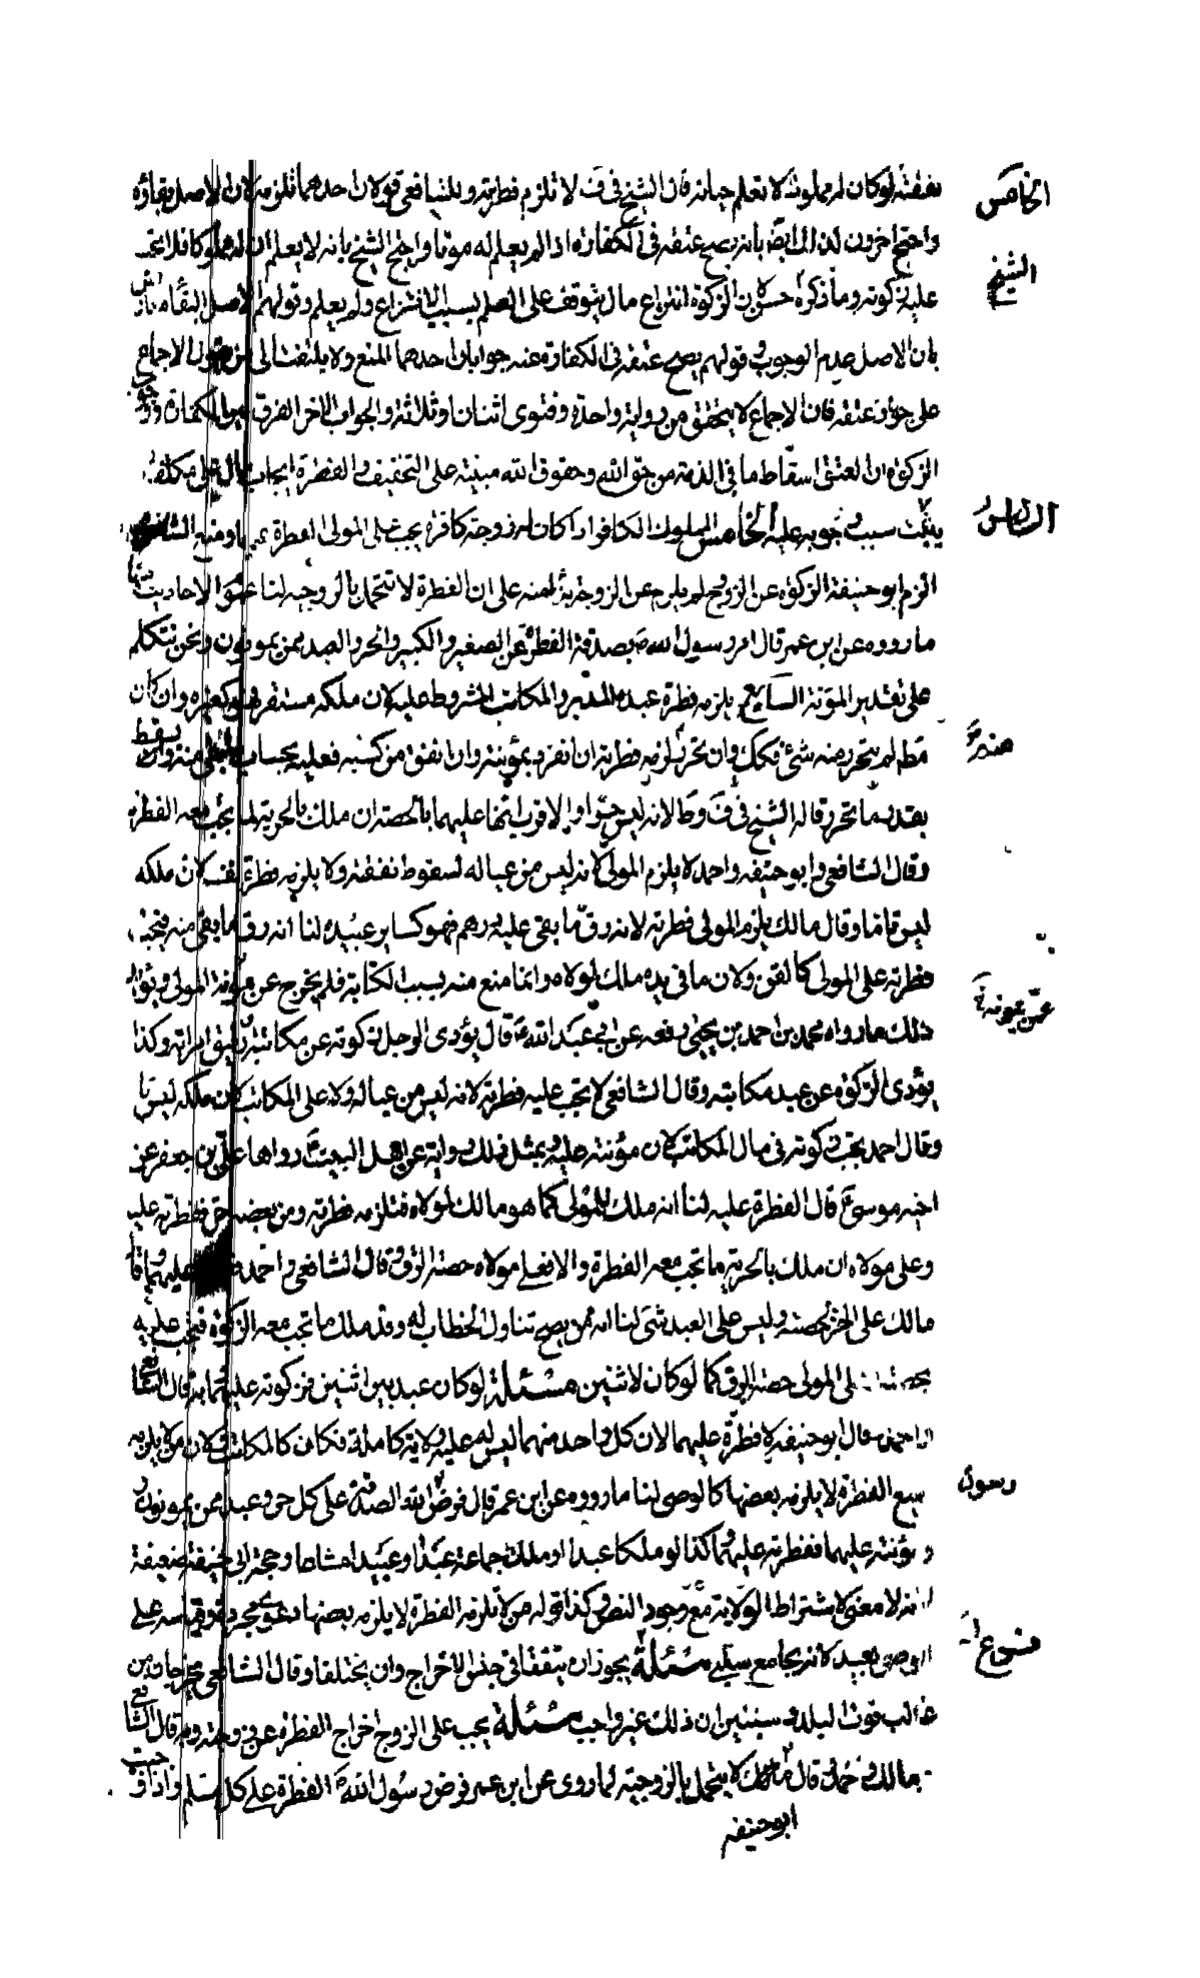 نفقته لو كان له مملوك لا تعلم حياته قال الشيخ في ف لا تلزم فطرته وللشافعي قولان احدهما تلزمه لان الاصل بقاؤه
واحتج اخرون لذلك ايضا بانه يصح عتقه في الكفارة اذا لم يعلم له موتا واحتج الشيخ بانه لا يعلم ان له مملوكا فلا تجب
عليه زكوته وما ذكره حسن لان الزكوة انتزاع مال يتوقف على العلم بسبب الانتزاع ولم يعلم وقولهم الاصل البقاء
بان الاصل عدم الوجوب وقولهم يصح عتقه في الكفارة عنه جوابان احدهما المنع ولا يلتفت الى من يقول الاجماع
على جواز عتقه فان الاجماع لا يتحقق من رواية واحدة وفتوى اثنان او ثلاثة والجواب الاخر الفرق بين الكفارة ووجوب
الزكوة ان العتق اسقاط ما في الذمة من حق الله وحقوق الله مبنية على التخفيف والفطرة ايجاب مال على مكلف
يثبت سبب وجوبه عليه الخامس المملوك الكافر اذا كان له زوجة كافرة يجب على المولى الفطرة عنها ومنع الشافعي
الزم ابو حنيفة الزكوة عن الزوج لم يلزم عن الزوجة بناء منه على ان الفطرة لا تتحمل بالزوجية لنا عموم الاحاديث منها
ما رووه عن ابن عمر قال امر رسول الله ص بصدقة الفطرة عن الصغير والكبير والحر والعبد ممن يمونون ونحن نتكلم
على تقدير المؤنة السابع يلزمه فطرة عبده المدبر والمكاتب المشروط عليه لان ملكه مستقر فهو كغيره وان كان
مط لم يتحرر منه شئ فكك وان تحرر لزمه فطرته ان انفرد بمؤنته وان انفق من كسبه فعليه بحساب ما بقي منه وان يسقط
بقدر ما تحرر قاله الشيخ في ف وط لانه ليس حرا و الاقرب انها عليهما بالحصة ان ملك بالحرية ما يجب معه الفطرة
وقال الشافعي وابو حنيفه واحمد لا يلزم المولى لانه ليس من عياله لسقوط نفقته ولا يلزمه فطرة نفسه لان ملكه
ليس تاما وقال مالك يلزم المولى فطرته لانه رق ما بقي عليه درهم فهو كساير عبيده لنا انه رق ما بقي منه فتجب
فطرته على المولى كالقن ولان ما في يده ملك لمولاه وانما منع منه بسبب الكتابة فلم يخرج عن مؤنة المولى ويؤيد
ذلك ما رواه محمد بن احمد بن يحيى رفعه عن ابي عبد الله ع قال يؤدى الرجل زكوته عن مكاتبه ورقيق امراته وكذا
يؤدى الزكوة عن عبد مكاتبته وقال الشافعي لا تجب عليه فطرته لانه ليس من عياله ولا على المكاتب لان ملكه ليس تا
وقال احمد تجب زكوته في مال المكاتب لان مؤنته عليه وبمثل ذلك رواية عن اهل البيت ع رواها علي بن جعفر عن
اخيه موسى ع قال الفطرة عليه لنا انه ملك للمولى كما هو مالك لمولاه فتلزمه فطرته ومن بعضه حر ففطرته عليه
وعلى مولاه ان ملك بالحرية ما تجب معه الفطرة والا فعلى مولاه حصة الرق وقال الشافعي واحمد عليهما وقا
مالك على الحر بحصته وليس على العبد شئ لنا انه ممن يصح تناول الخطاب له وقد ملك ما تجب معه الزكوة فتجب عليه
بحصته على المولى حصة الرق كما لو كان لاثنين مسئلة لو كان عبد بين اثنين فزكوته عليهما وبه قال الشافعي
واحمد وقال ابو حنيفه لا فطرة عليهما لان كل واحد منهما ليس له عليه ولاية كاملة فكان كالمكاتب ولان من لا يلزمه
جميع الفطرة لا يلزمه بعضها كالوصى لنا ما رووه عن ابن عمر قال فرض الله الصدقة على كل حر وعبد ممن يمونون و
مؤنته عليهما ففطرته عليهما وكذا لو ملكا عبدا او ملك جماعة عبدا او عبيدا مشاعا وحجة ابي حنيفة ضعيفة
لانه لا معنى لاشتراط الولاية مع وجود النص وكذا قوله من لا تلزمه الفطرة لا يلزمه بعضها دعوى مجردة وقياسه على
الوصى بعيد لانه بجامع سلبي مسئلة يجوز ان يتفقا في جنس الاخراج وان يختلفا وقال الشافعي يخرجان من
غالب قوت البلد وسنبين ان ذلك غير واجب مسئلة يجب على الزوج اخراج الفطرة عن زوجته وبه قال الشافعي
ومالك واحمد وقال ابو حنيفه لا يتحمل بالزوجية لما روى عن ابن عمر فرض رسول الله ص الفطرة على كل مسلم واذا وجبت
ابو حنيفه
الخامس
الشيخ
السادس
عن مؤنة
رسول